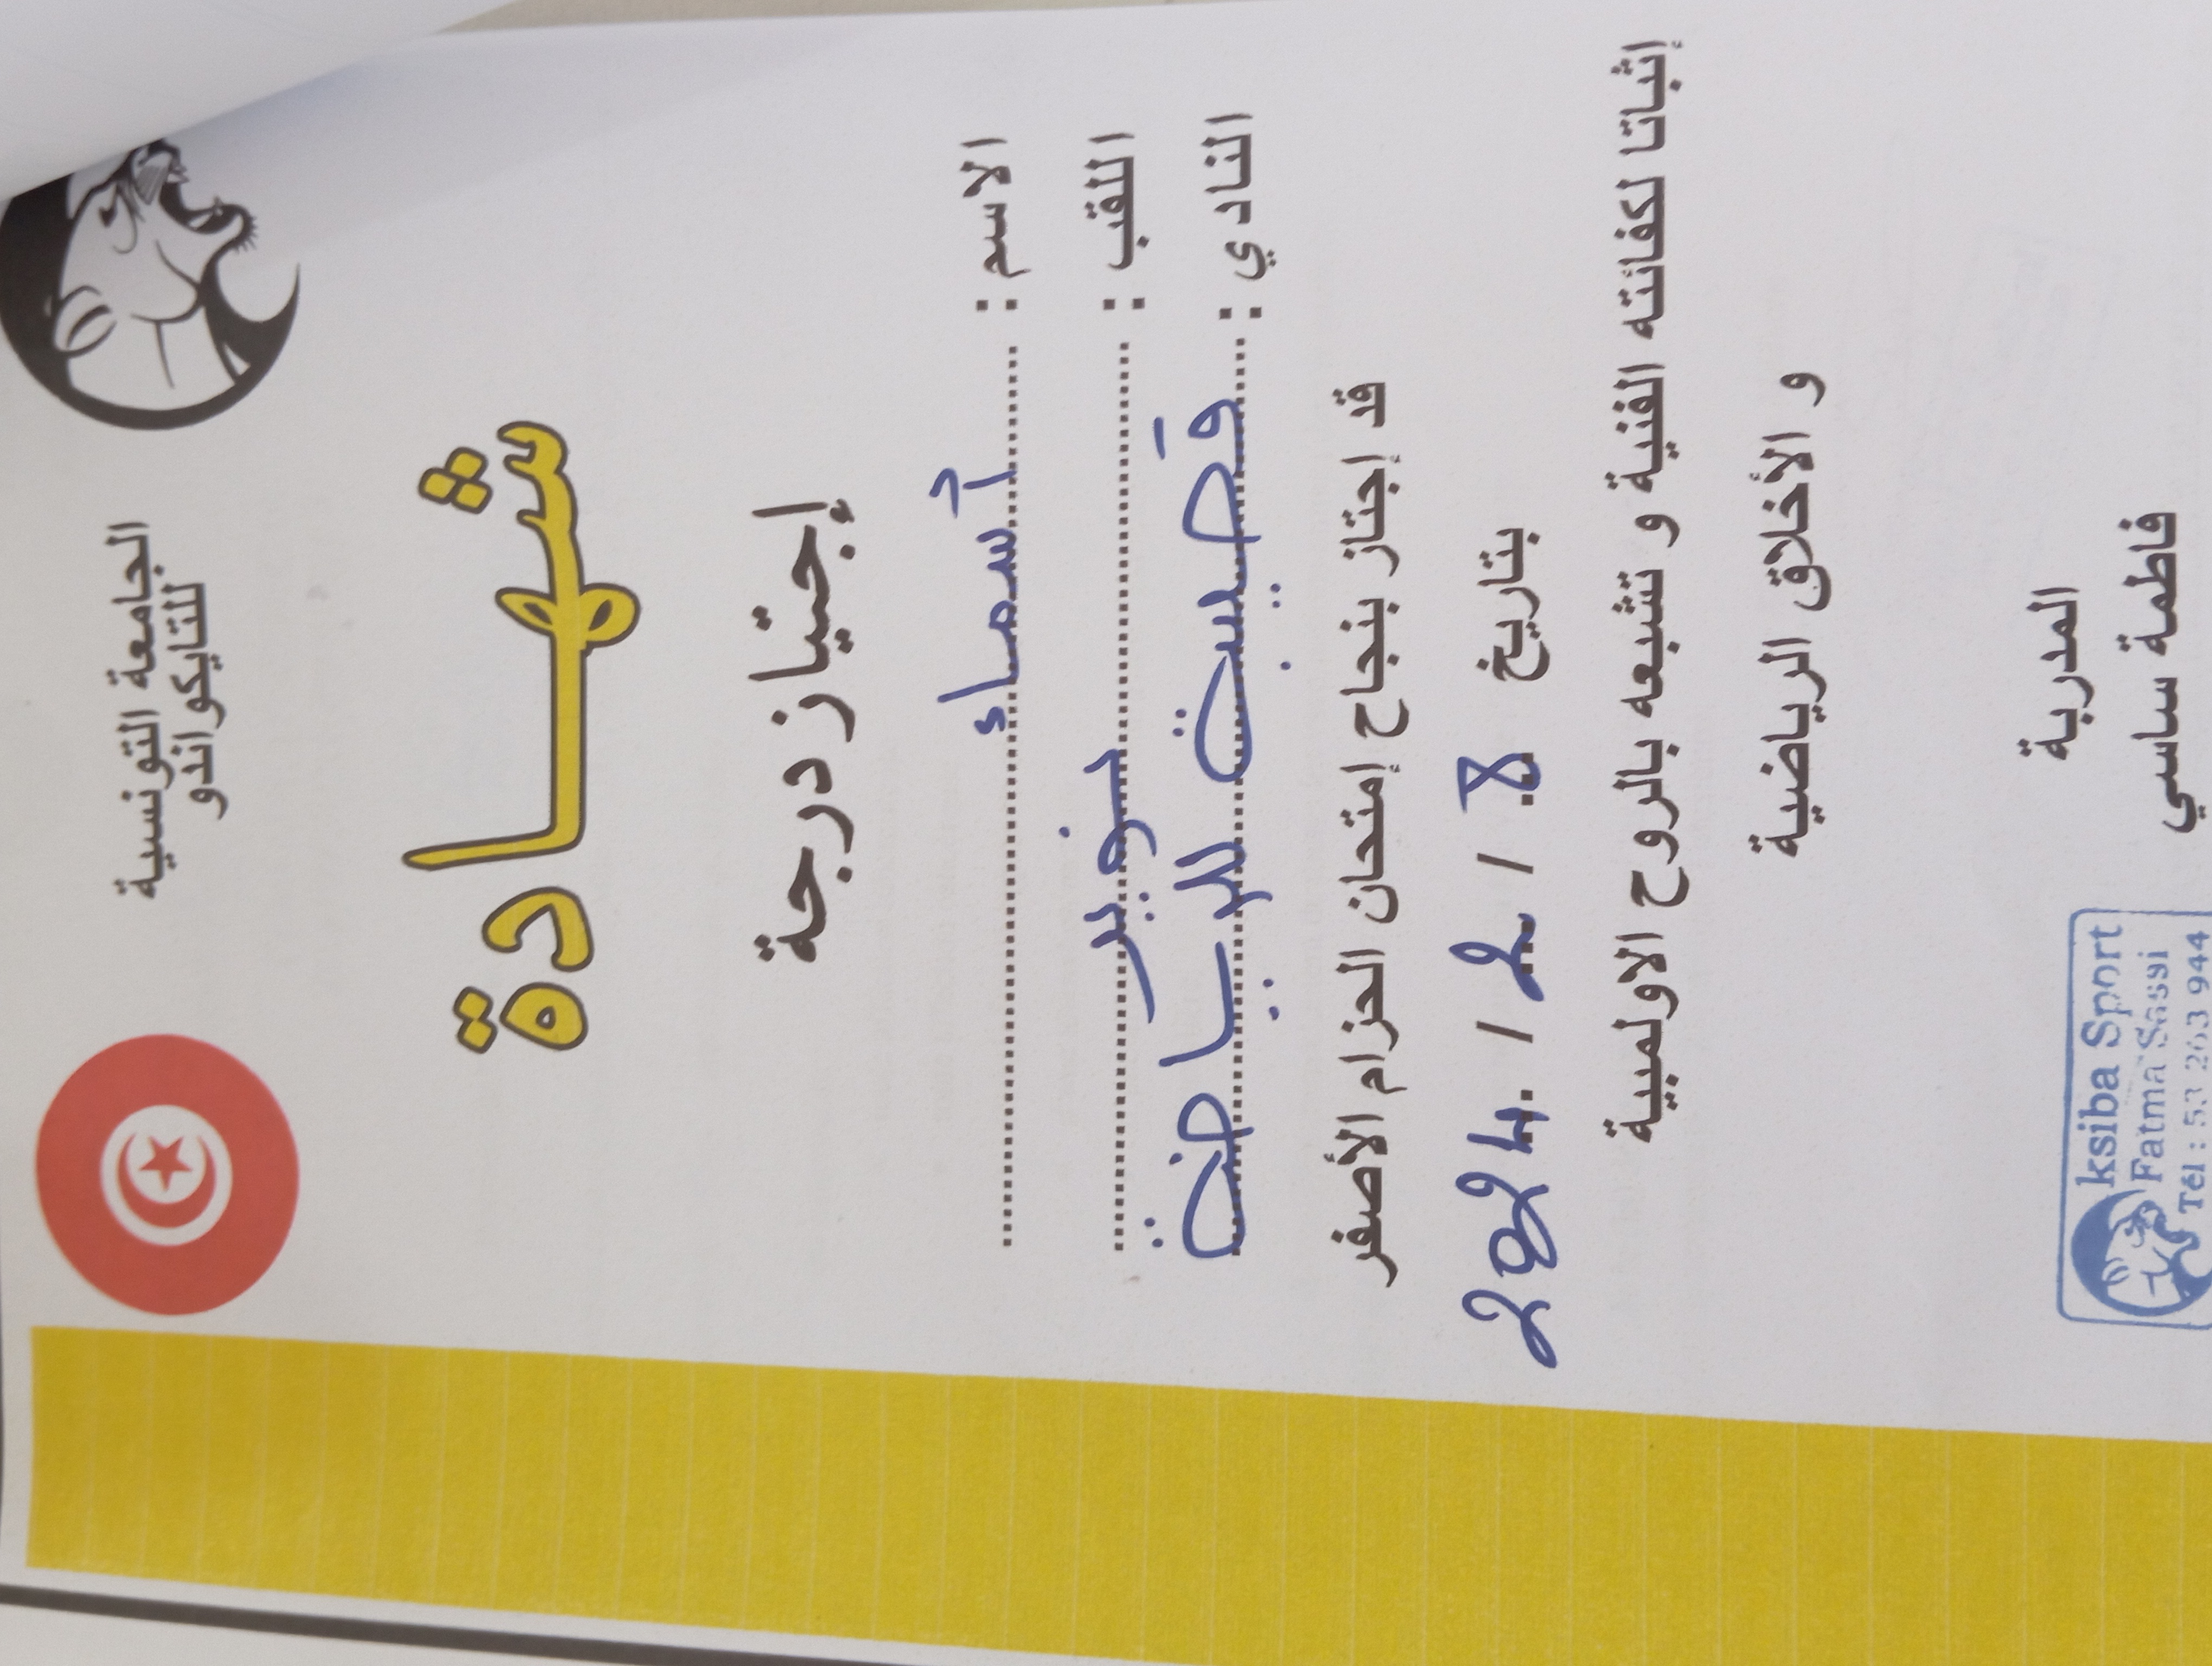 الجامعة التونسية
للتايكواندو
شهادة
إجتياز درجة
الاسم : أسماء
اللقب :
النادي : قصيبة للرياضة
قد إجتاز بنجاح إمتحان الحزام الأصفر
بتاريخ 8 / 2 / 2024
إثباتا لكفائته الفنية و تشبعه بالروح الاولمبية
و الأخلاق الرياضية
المدربة
فاطمة ساسي
ksiba Sport
Fatma Sassi
Tél : 53 263 944